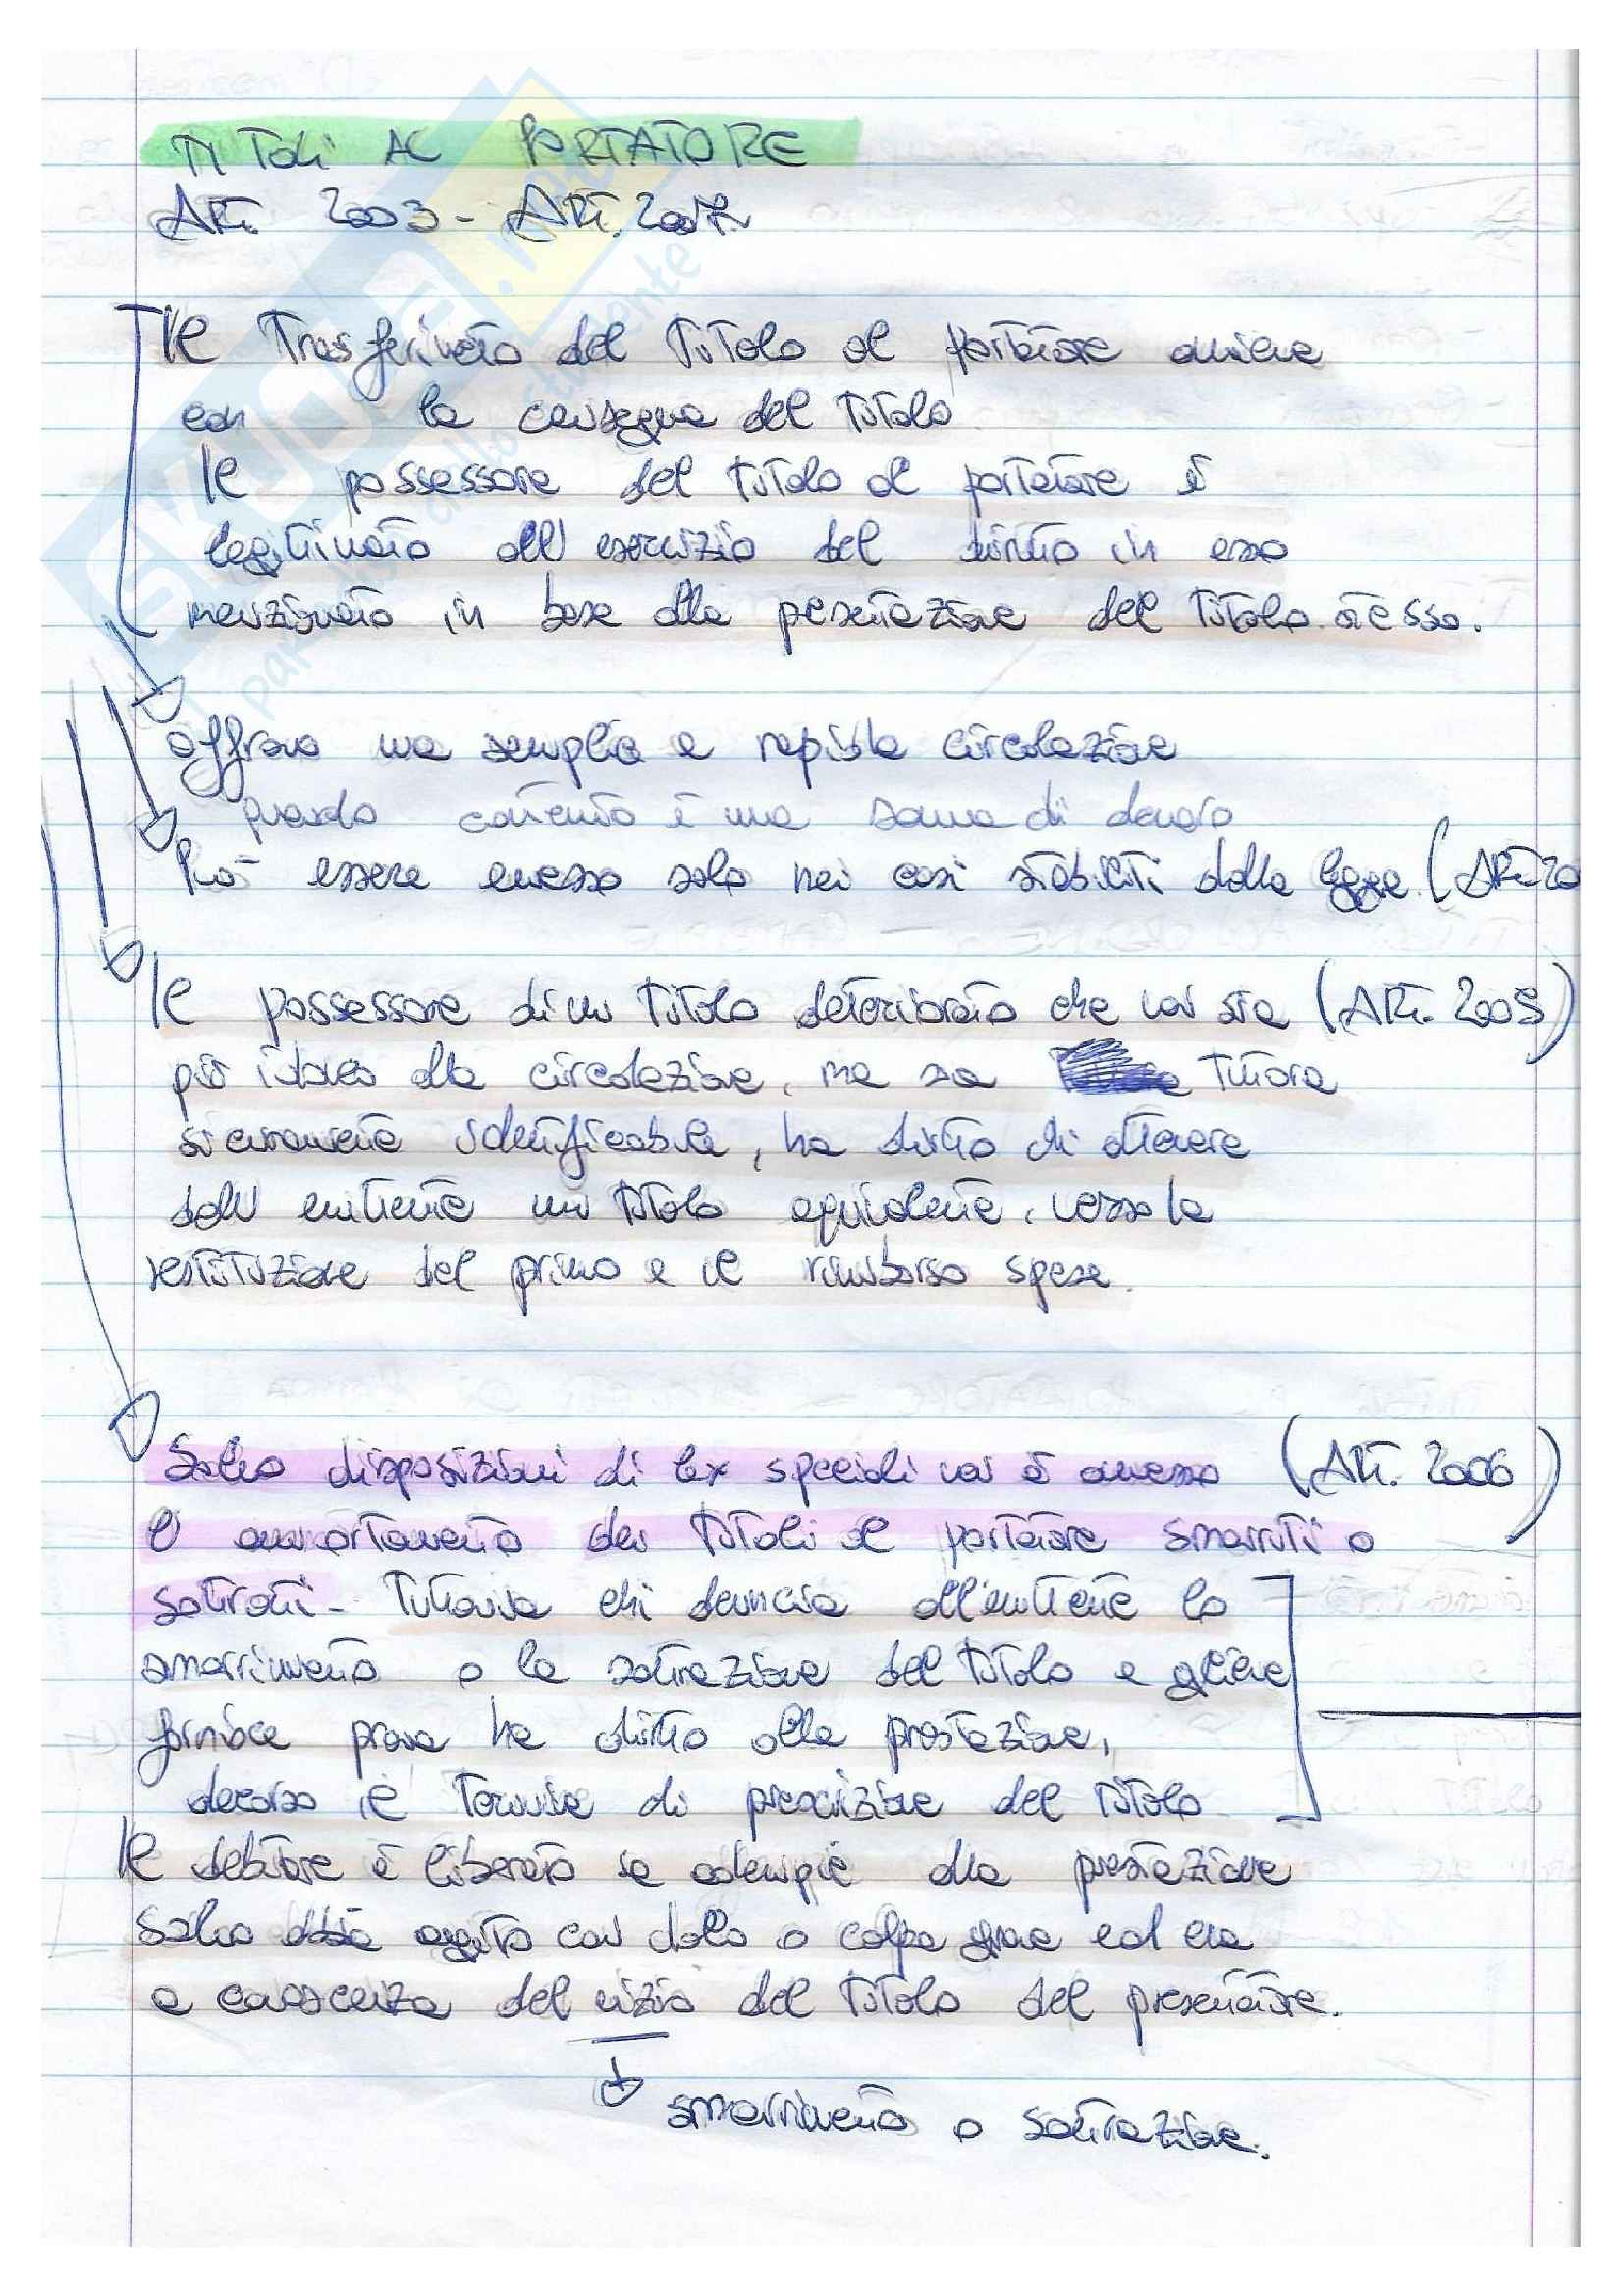 TITOLI AL PORTATORE
ART. 2003 - ART. 2007
Il trasferimento del titolo al portatore avviene
con la consegna del titolo
Il possessore del titolo al portatore è
legittimato all'esercizio del diritto in esso
menzionato in base alla presentazione del titolo stesso.
offrono una semplice e rapida circolazione
quando contenuto è una somma di denaro
Può essere emesso solo nei casi stabiliti dalla legge. (ART. 20
Il possessore di un titolo deteriorato che non sia (ART. 2005)
più idoneo alla circolazione, ma sia tuttora
sicuramente identificabile, ha diritto di ottenere
dall'emittente un titolo equivalente, verso la
restituzione del primo e il rimborso spese.
Salvo disposizioni di lex speciali non è ammesso (ART. 2006)
l'ammortamento dei titoli al portatore smarriti o
sottratti - Tuttavia chi denuncia all'emittente lo
smarrimento o la sottrazione del titolo e gliene
fornisce prova ha diritto alla prestazione,
decorso il termine di prescrizione del titolo
Il debitore è liberato se adempie alla prestazione
salvo abbia agito con dolo o colpa grave ed era
a conoscenza del vizio del titolo del presentatore.
smarrimento o sottrazione.
SKUOLA.net